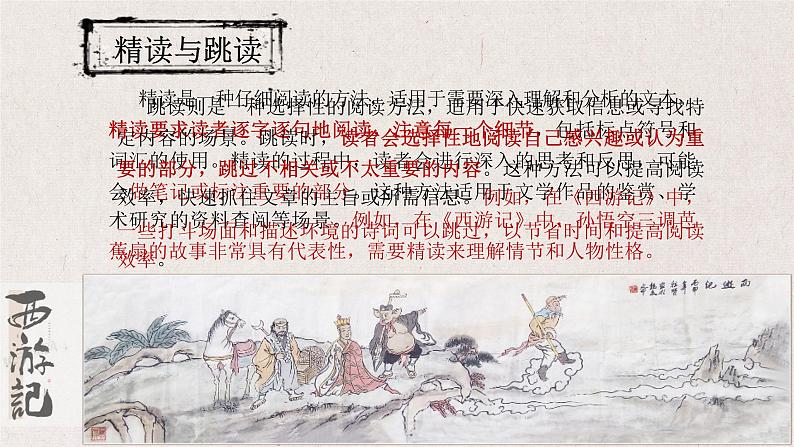 精读与跳读
精读是一种仔细阅读的方法，适用于需要深入理解和分析的文本。
精读要求读者逐字逐句地阅读，注意每一个细节，包括标点符号和
词汇的使用。精读的过程中，读者会进行深入的思考和反思，可能
会做笔记或标注重要的部分。这种方法适用于文学作品的鉴赏、学
术研究的资料查阅等场景。例如，在《西游记》中，孙悟空三调芭
蕉扇的故事非常具有代表性，需要精读来理解情节和人物性格。
跳读则是一种选择性的阅读方法，适用于快速获取信息或寻找特
定内容的场景。跳读时，读者会选择性地阅读自己感兴趣或认为重
要的部分，跳过不相关或不太重要的内容。这种方法可以提高阅读
效率，快速抓住文章的主旨或所需信息。例如，在《西游记》中，
一些打斗场面和描述环境的诗词可以跳过，以节省时间和提高阅读
效率。
西游記
西遊記